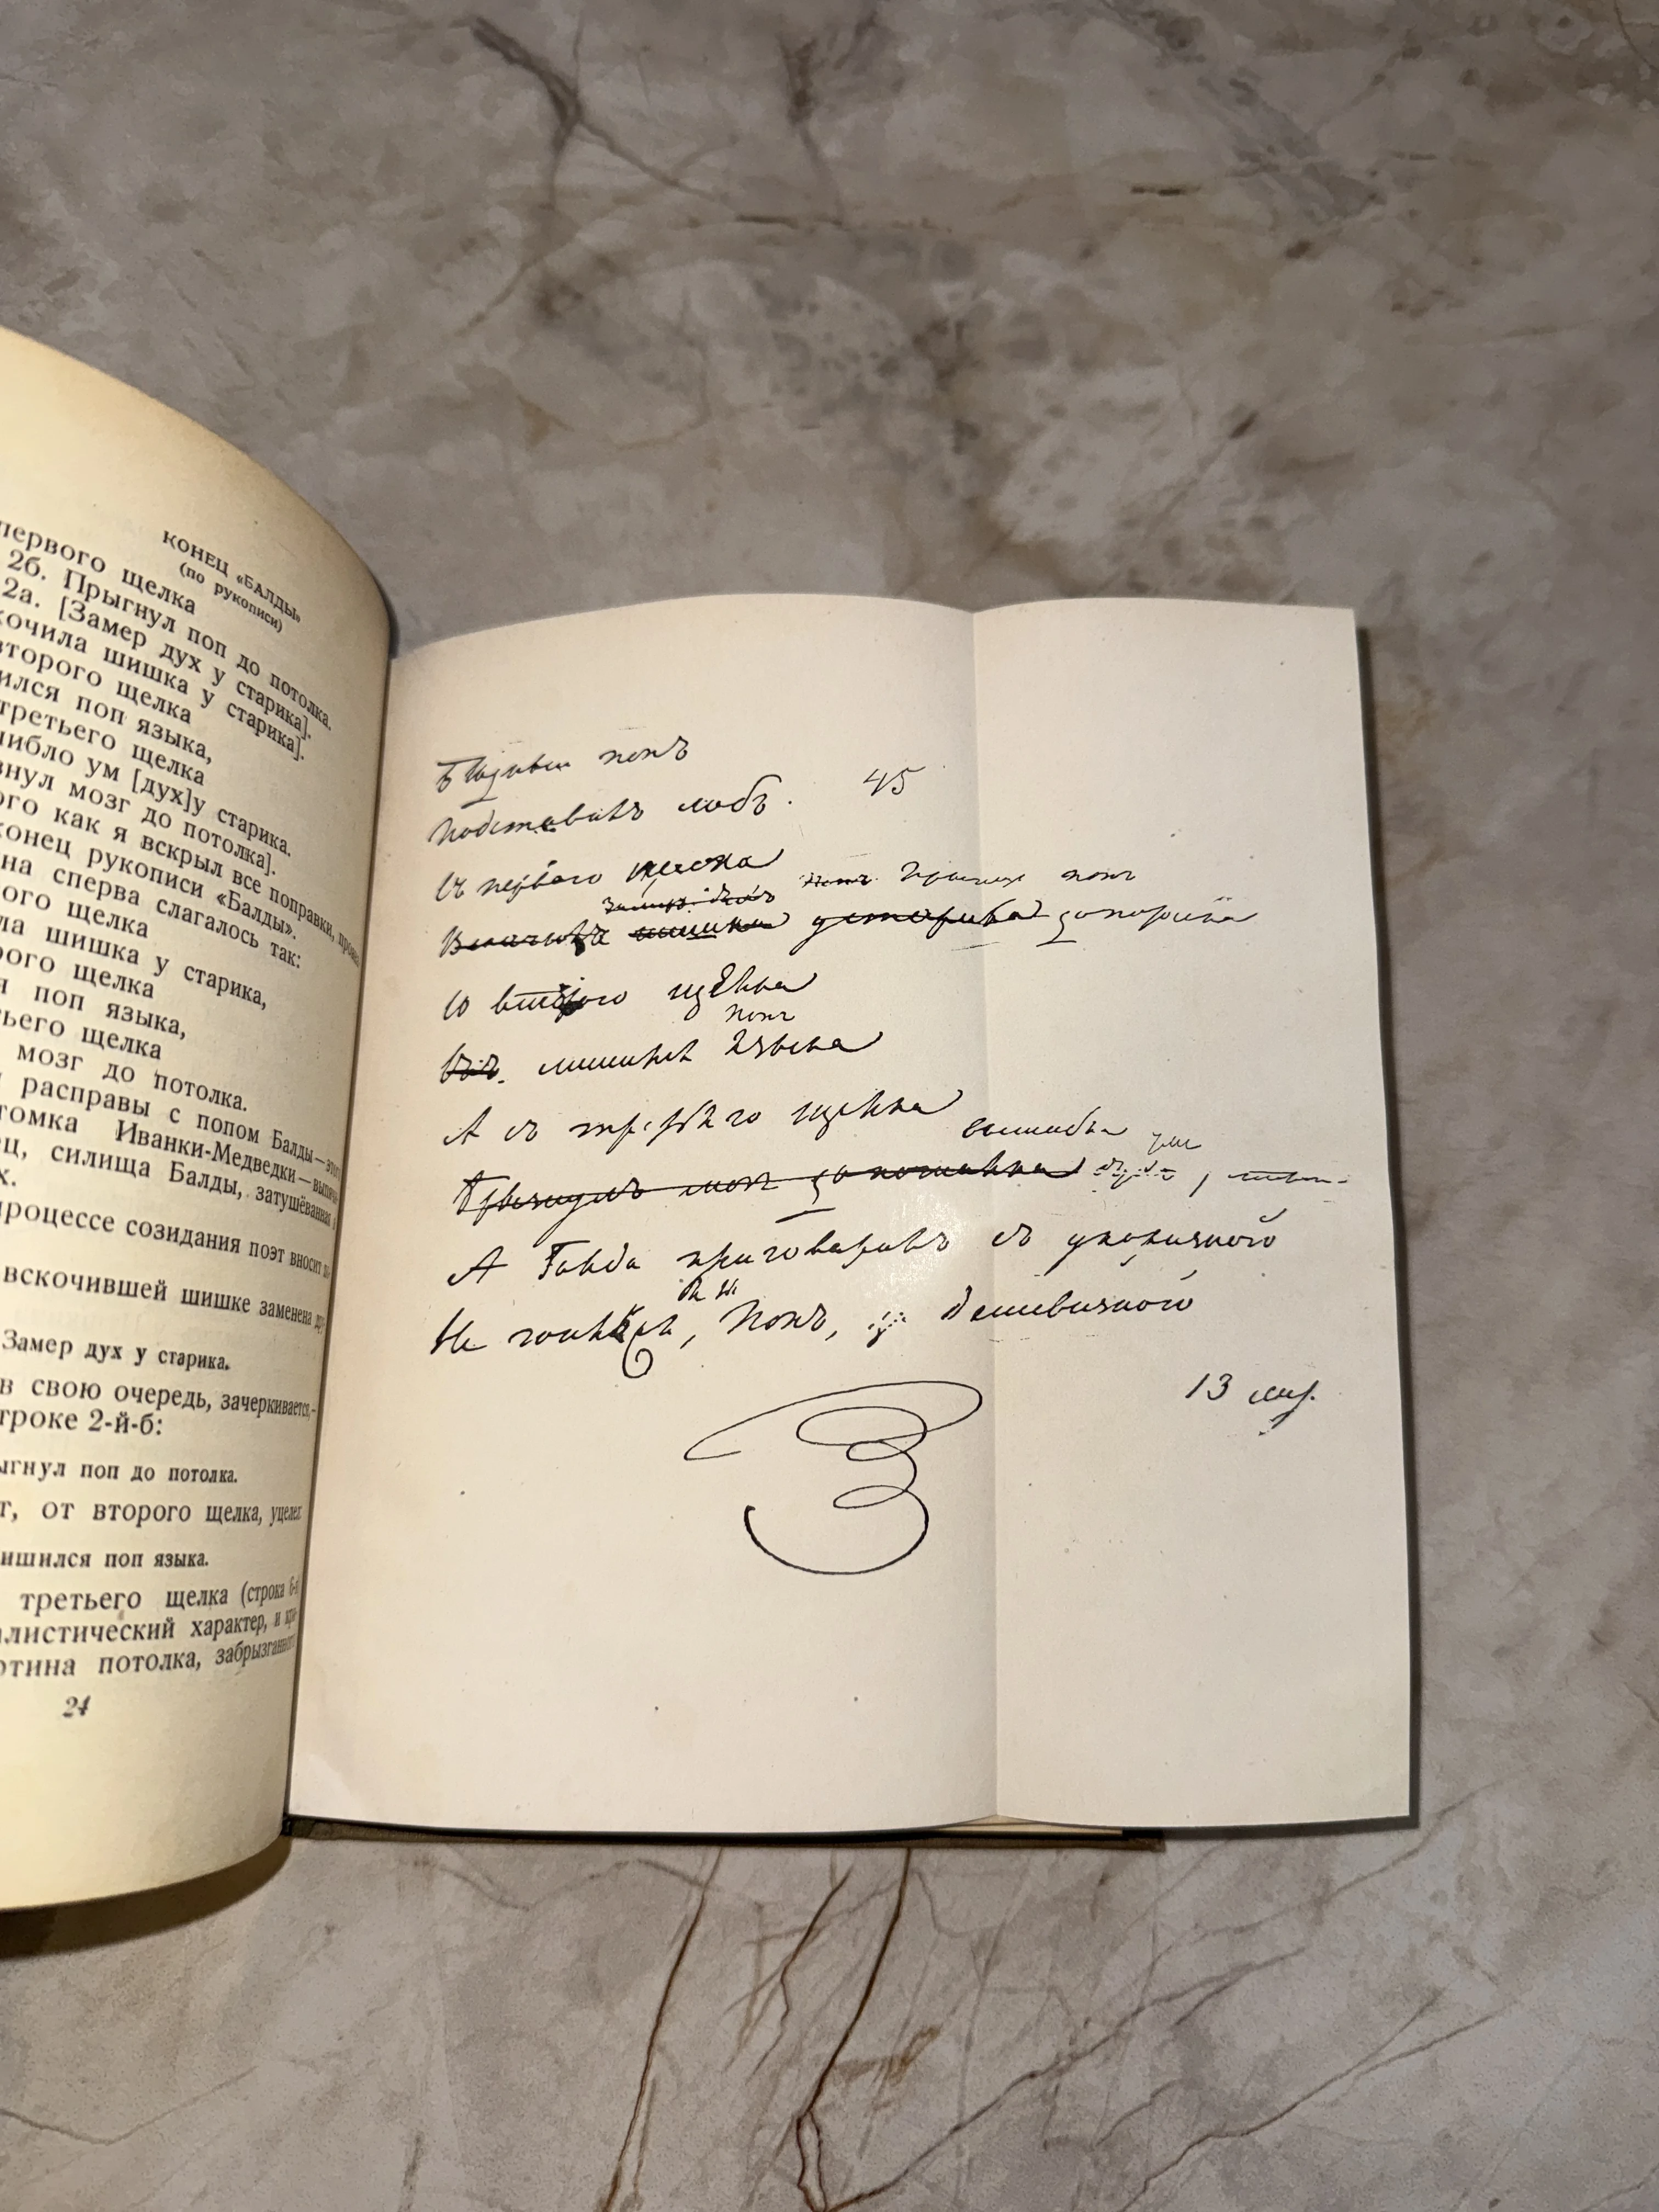 КОНЕЦ «БАЛДЫ»
(по рукописи)
первого щелка
2б. Прыгнул поп до потолка.
2а. [Замер дух у старика].
кочила шишка у старика].
второго щелка
ился поп языка,
третьего щелка
шибло ум [дух]у старика.
знул мозг до потолка].
ого как я вскрыл все поправки,
конец рукописи «Балды».
на сперва слагалось так:
ого щелка
ла шишка у старика,
рого щелка
я поп языка,
тьего щелка
мозг до потолка.
расправы с попом Балды—
томка Иванки-Медведки—
ец, силища Балды, затушёванная
х.
процессе созидания поэт вносит
вскочившей шишке заменена
Замер дух у старика.
в свою очередь, зачеркивается,—
троке 2-й-б:
ыгнул поп до потолка.
г, от второго щелка, уцелел
ишился поп языка.
третьего щелка (строка 6-я
алистический характер, и
ртина потолка, забрызганного
24
Бедный попъ
Подставилъ лобъ. 45
Съ перваго щелка
Замеръ духъ Прыгнулъ попъ
Вскочила шишка у старика до потолка
Со втораго щелка
попъ
лишился языка
А съ третьяго щелка
вышибло умъ
Брызнулъ мозг до потолка
А Балда приговаривалъ съ укоризной
Не гонялся
бы ты, Попъ, за дешевизной
13 сент.